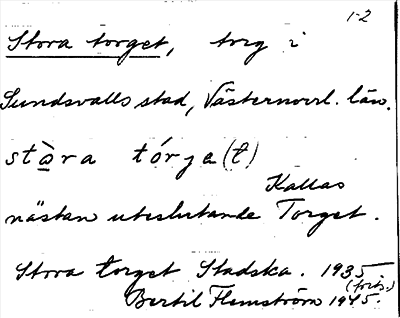 1-2
Stora torget, torg i
Sundsvalls stad, Västernorrl. län.
stò̱ra tórjə(t)
Kallas
nästan uteslutande Torget.
Stora torget Stadska. 1935
(forts.)
Bertil Flemström 1945.